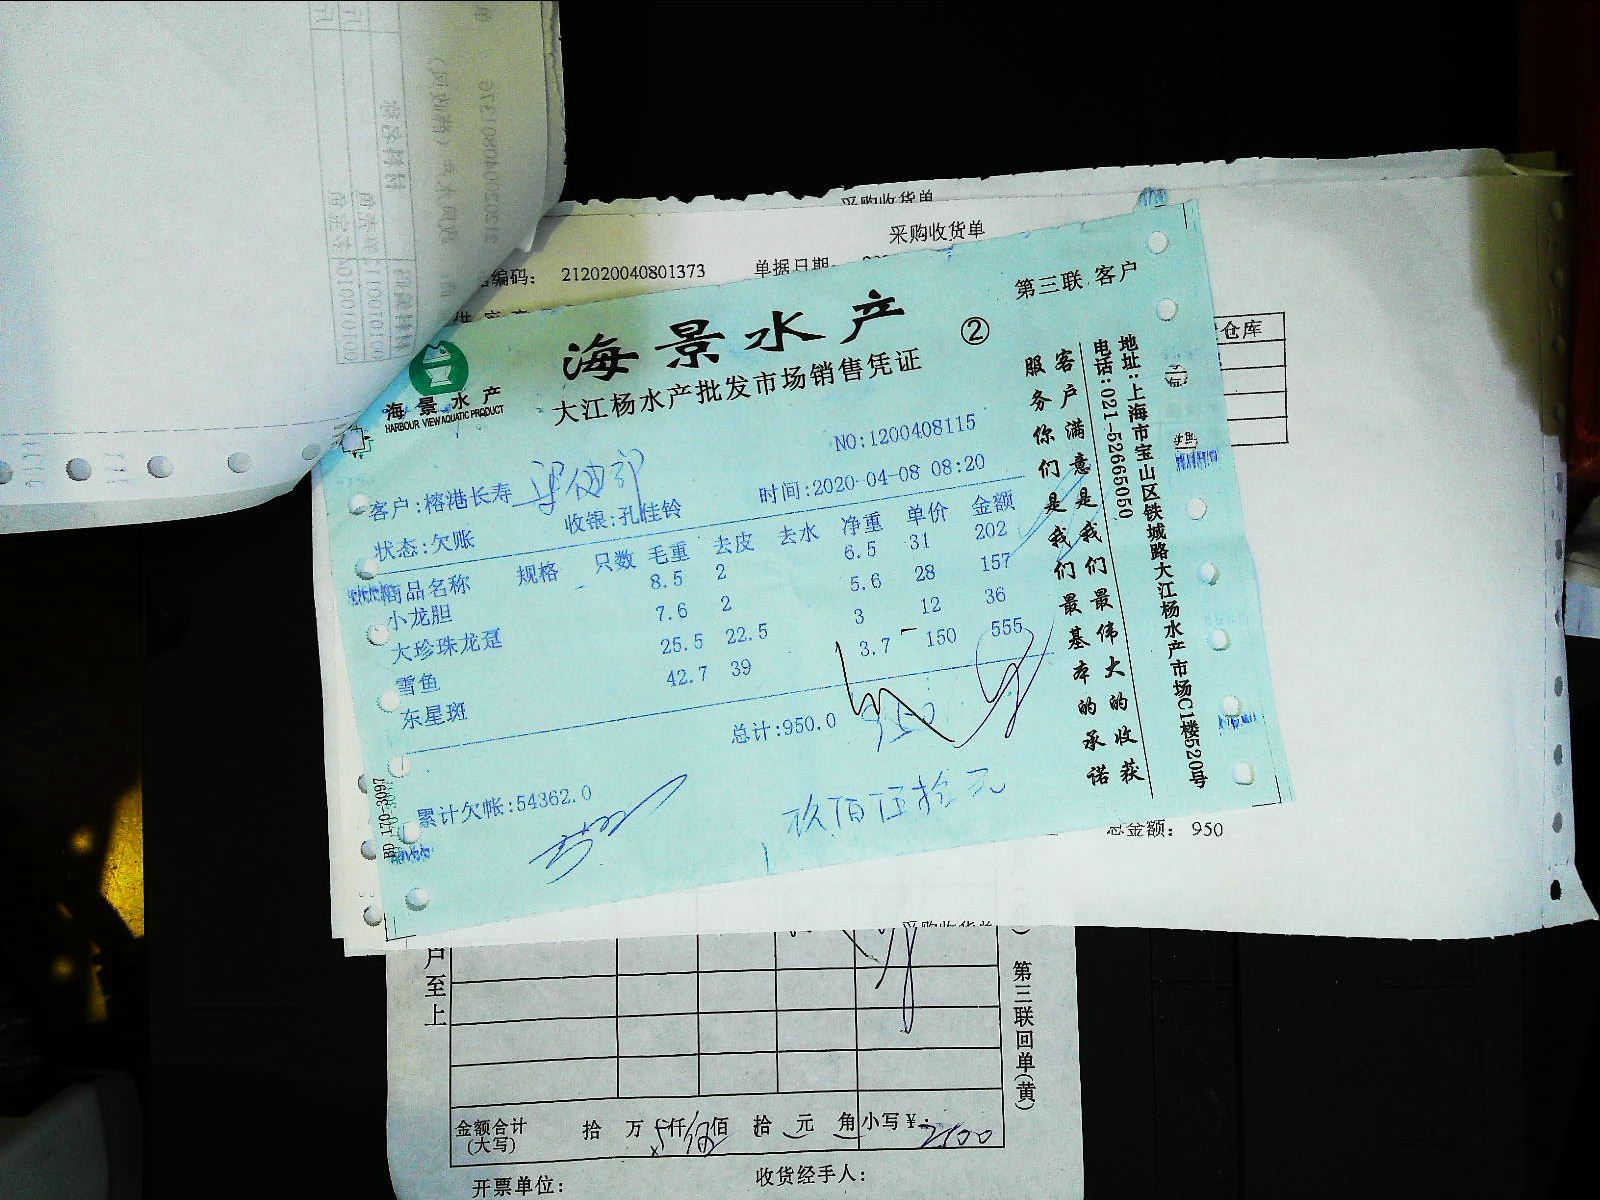 采购收货单
采购收货单
编码： 212020040801373 单据日期：
仓库
第三联 客户
海景水产
②
大江杨水产批发市场销售凭证
海景水产
HARBOUR VIEW AQUATIC PRODUCT
NO:1200408115
客户:榕港长寿
收银:孔佳铃
时间:2020-04-08 08:20
状态:欠账
商品名称 规格 只数 毛重 去皮 去水 净重 单价 金额
小龙胆 8.5 2 6.5 31 202
大珍珠龙趸 7.6 2 5.6 28 157
雪鱼 25.5 22.5 3 12 36
东星斑 42.7 39 3.7 150 555
总计:950.0
950
累计欠帐:54362.0
玖佰伍拾元
客户满意是我们最伟大的收获
服务你们是我们最基本的承诺
地址:上海市宝山区铁城路大江杨水产市场C1楼520号
电话:021-52665050
BD-120-3097
总金额： 950
户至上
采购收货单
第三联回单(黄)
金额合计
(大写)
拾 万 仟 佰 拾 元 角 小写￥:
开票单位： 收货经手人：